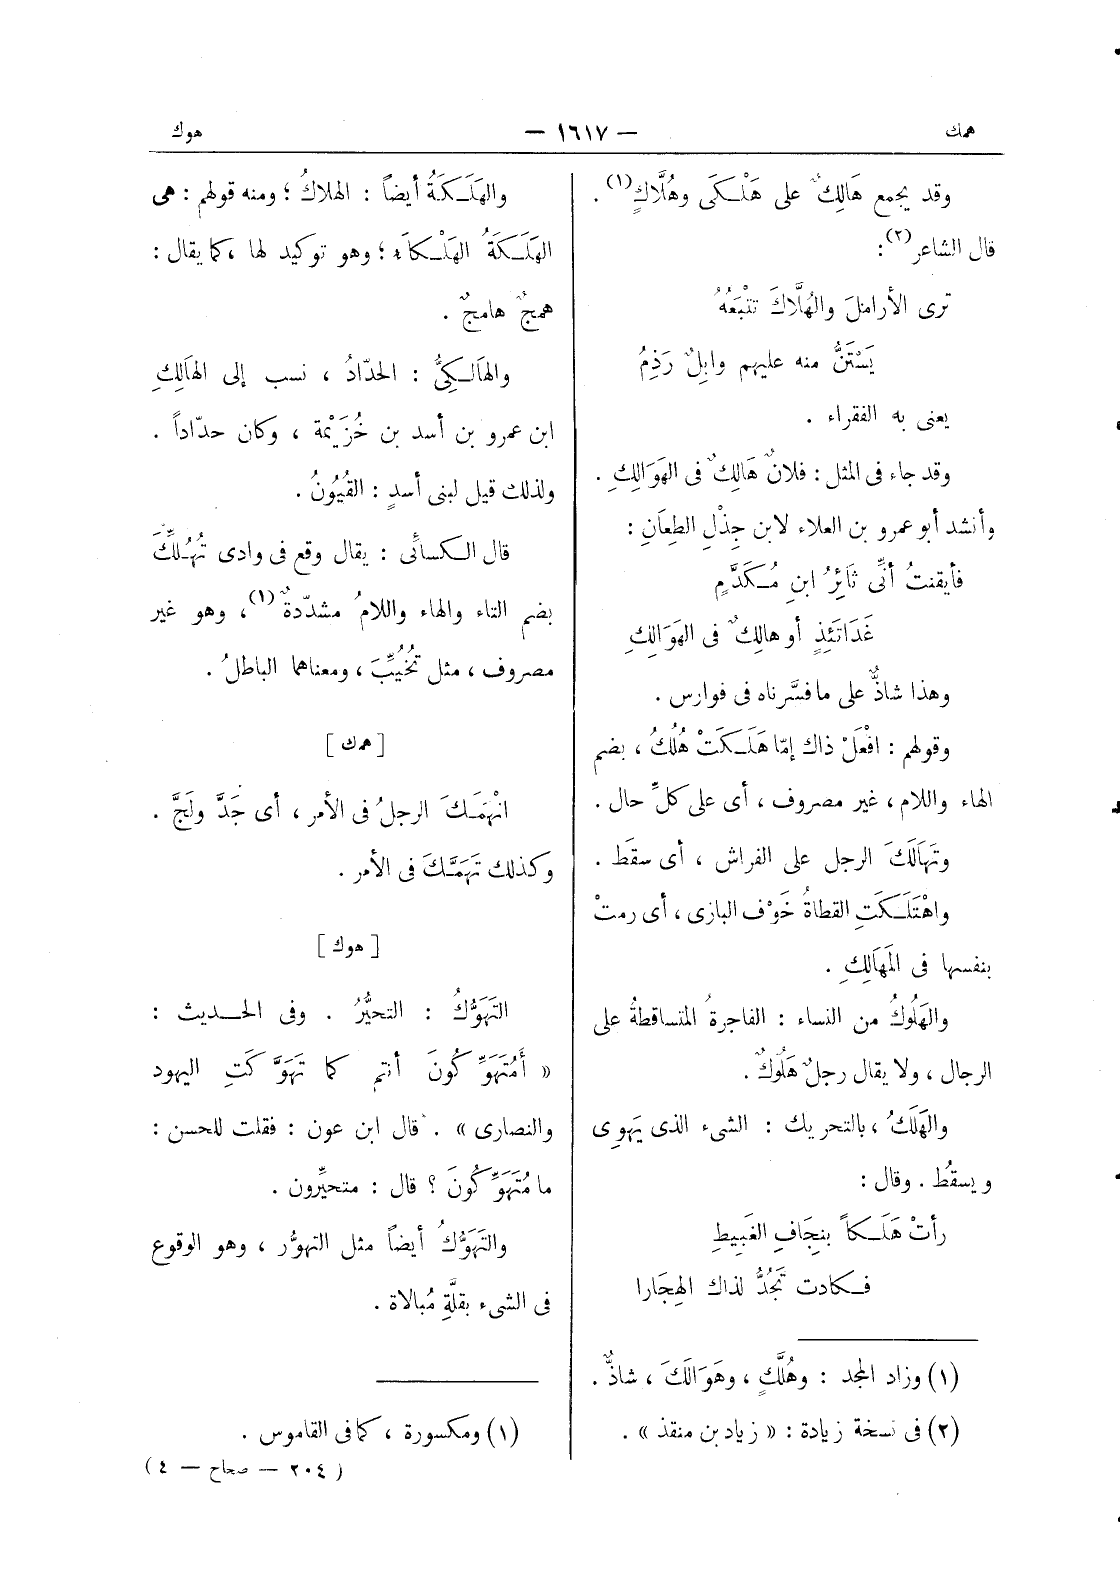 همك
— ١٦١٧ —
هوك
وقد يجمع هَالِكٌ على هَلْـكَى وهُلَّاكٍ(١) .
قال الشاعر(٢) :
ترى الأرامَِلَ والهُلَّاكَ تتْبَعُهُ
يَسْتَنُّ منه عليهم وابِلٌ رَذِمُ
يعنى به الفقراء .
وقد جاء فى المثل : فلانٌ هَالِكٌ فى الهَوَالِكِ .
وأنشد أبو عمرو بن العلاء لابن جِذْلِ الطِعَانِ :
فأيقنتُ أنِّى ثَائِرُ ابنِ مُـكَدَّمٍ
غَدَاتَئِذٍ أو هالِكٌ فى الهَوَالِكِ
وهذا شاذٌّ على ما فسَّرناه فى فوارس .
وقولهم : افْعَلْ ذاك إمّا هَلَـكَتْ هُلُكُ ، بضم
الهاء واللام ، غير مصروف ، أى على كلِّ حال .
وتَهَالَكَ الرجل على الفراش ، أى سقَط .
واهْتَلَـكَتِ القطاةُ خَوْفَ البازى ، أى رمتْ
بنفسها فى المَهَالِكِ .
والهَلُوكُ من النساء : الفاجرةُ المتساقطةُ على
الرجال ، ولا يقال رجلٌ هَلُوكٌ .
والهَلَكُ ، بالتحريك : الشىء الذى يَهوِى
ويسقُط . وقال :
رأتْ هَلَـكاً بنِجَافِ الغَبِيطِ
فـكادت تَجُدُّ لذاك الهِجَارا
(١) وزاد المجد : وهُلَّكٍ ، وهَوَالَكَ ، شاذٌّ .
(٢) فى نسخة زيادة : « زياد بن منقذ » .
والهَلَـكَةُ أيضاً : الهلاكُ ؛ ومنه قولهم : هى
الهَلَـكَةُ الهَلْـكَاَءُ ؛ وهو توكيد لها ، كما يقال :
همجٌ هامجٌ .
والهَالـكِىُّ : الحدّادُ ، نسب إلى الهَالِكِ
ابن عمرو بن أسد بن خُزَيْمة ، وكان حدّاداً .
ولذلك قيل لبنى أسدٍ : القُيُونُ .
قال الـكسائى : يقال وقع فى وادى تُهُـلِّكَ
بضم التاء والهاء واللامُ مشدّدةٌ(١) ، وهو غير
مصروف ، مثل تُخُيِّبَ ، ومعناهما الباطلُ .
[ همك ]
انْهَمَـكَ الرجلُ فى الأمر ، أى جَدَّ ولَجَّ .
وكذلك تَهَمَّـكَ فى الأمر .
[ هوك ]
التَهَوُّكُ : التحيُّرُ . وفى الحـديث :
« أَمُتَهَوِّكُونَ أنتم كما تَهَوَّكَتِ اليهود
والنصارى » . قال ابن عون : فقلت للحسن :
ما مُتَهَوِّكُونَ ؟ قال : متحيِّرون .
والتَهَوُّكُ أيضاً مثل التهوُّر ، وهو الوقوع
فى الشىء بقلَّةِ مُبالاة .
(١) ومكسورة ، كما فى القاموس .
( ٢٠٤ — صحاح — ٤ )